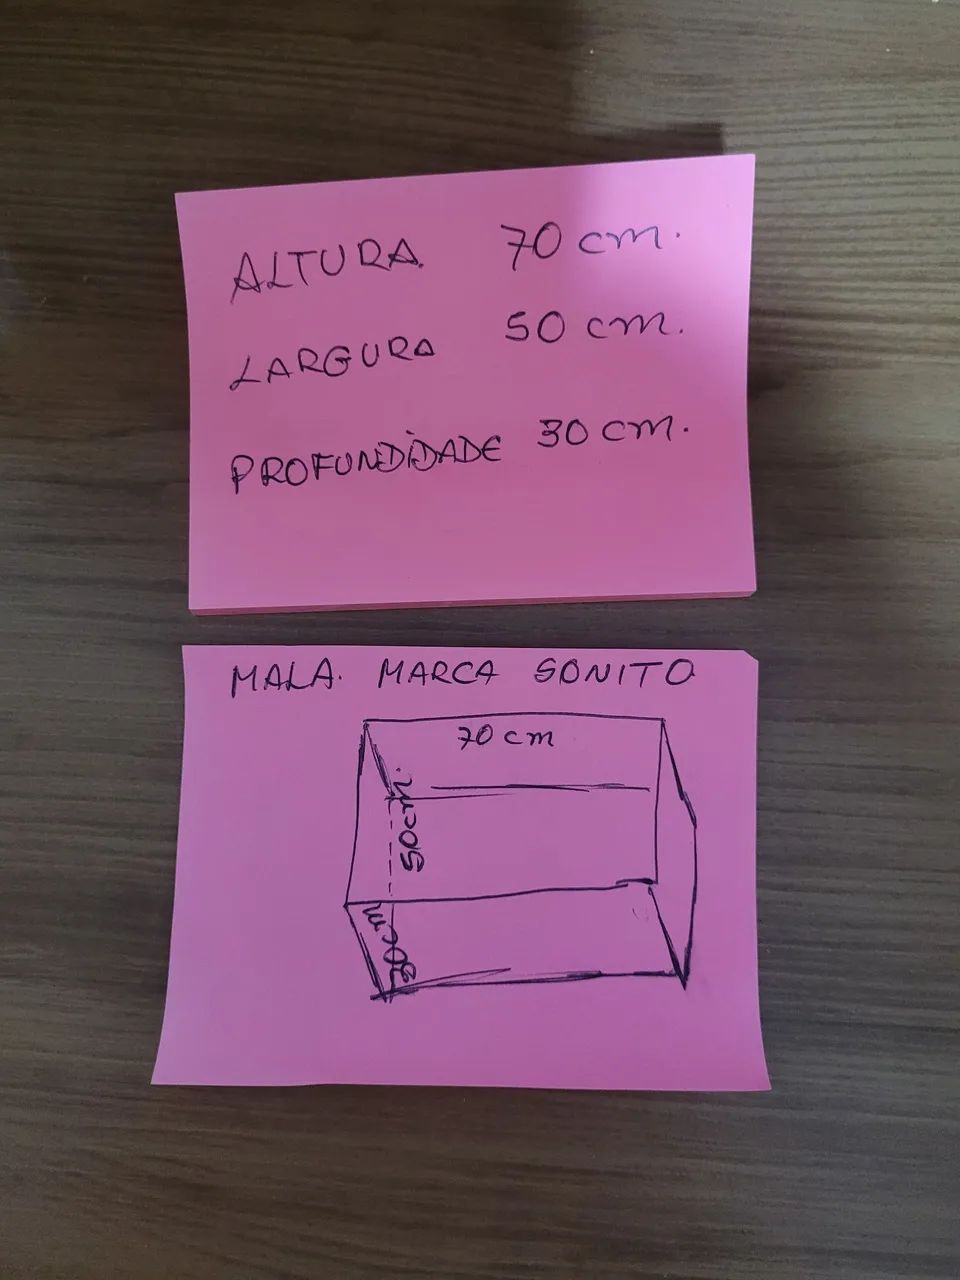 ALTURA 70 cm.
LARGURA 50 cm.
PROFUNDIDADE 30 cm.
MALA. MARCA SONITO
70 cm
50cm.
30cm